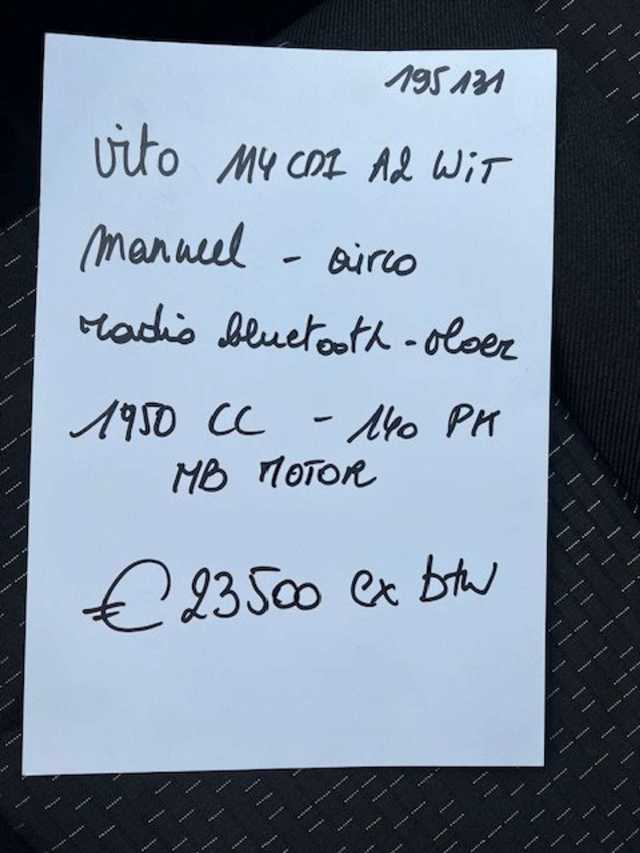 195131
Vito 114 CDI A2 WiT
Manueel - airco
radio bluetooth - vloer
1950 CC - 140 PK
MB MOTOR
€ 23500 ex btw